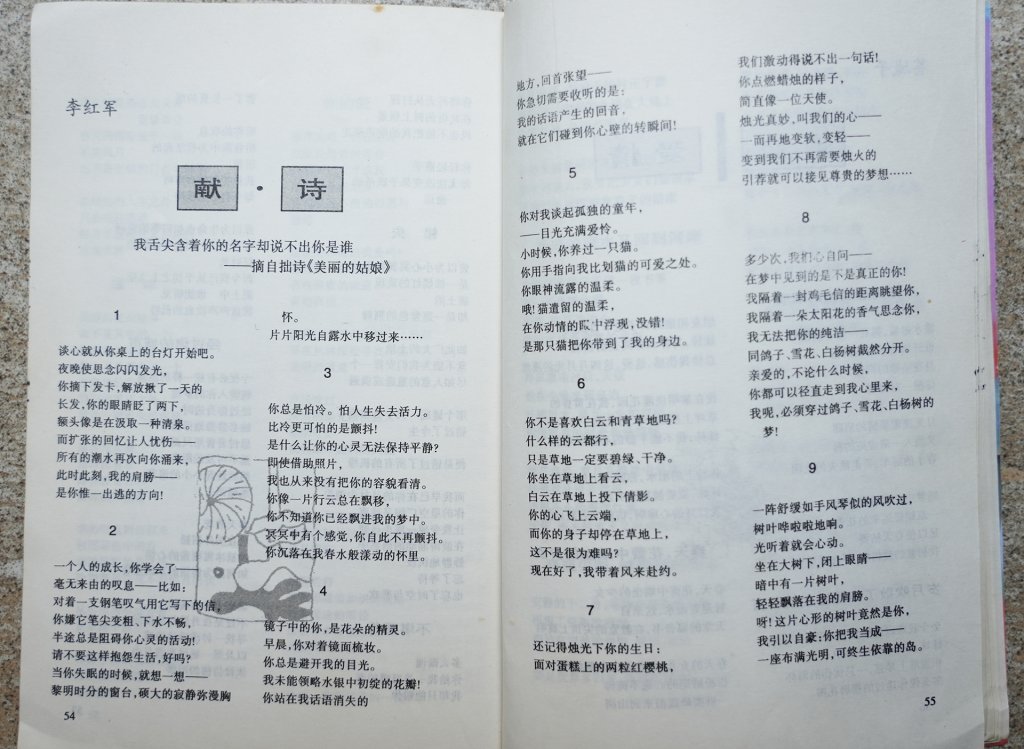 李红军
献·诗
我舌尖含着你的名字却说不出你是谁
——摘自拙诗《美丽的姑娘》
1
谈心就从你桌上的台灯开始吧。
夜晚使思念闪闪发光，
你摘下发卡，解放揪了一天的
长发，你的眼睛眨了两下，
额头像是在汲取一种清泉。
而扩张的回忆让人忧伤——
所有的潮水再次向你涌来，
此时此刻，我的肩膀——
是你惟一出逃的方向！
2
一个人的成长，你学会了——
毫无来由的叹息——比如：
对着一支钢笔叹气用它写下的信，
你嫌它笔尖变粗、下水不畅，
半途总是阻碍你心灵的活动！
请不要这样抱怨生活，好吗？
当你失眠的时候，就想一想——
黎明时分的窗台，硕大的寂静弥漫胸
怀。
片片阳光自露水中移过来……
3
你总是怕冷。怕人生失去活力。
比冷更可怕的是颤抖！
是什么让你的心灵无法保持平静？
即使借助照片，
我也从来没有把你的容貌看清。
你像一片行云总在飘移，
你不知道你已经飘进我的梦中。
冥冥中有个感觉，你自此不再颤抖。
你沉落在我春水般漾动的怀里。
4
镜子中的你，是花朵的精灵。
早晨，你对着镜面梳妆。
你总是避开我的目光。
我未能领略水银中初绽的花瓣！
你站在我话语消失的
54
地方，回首张望——
你急切需要收听的是：
我的话语产生的回音，
就在它们碰到你心壁的转瞬间！
5
你对我谈起孤独的童年，
——目光充满爱怜。
小时候，你养过一只猫。
你用手指向我比划猫的可爱之处。
你眼神流露的温柔。
哦！猫遗留的温柔，
在你动情的眼中浮现，没错！
是那只猫把你带到了我的身边。
6
你不是喜欢白云和青草地吗？
什么样的云都行，
只是草地一定要碧绿、干净。
你坐在草地上看云，
白云在草地上投下倩影。
你的心飞上云端，
而你的身子却停在草地上，
这不是很为难吗？
现在好了，我带着风来赴约。
7
还记得烛光下你的生日：
面对蛋糕上的两粒红樱桃，
我们激动得说不出一句话！
你点燃蜡烛的样子，
简直像一位天使。
烛光真妙，叫我们的心——
一而再地变软，变轻——
变到我们不再需要烛火的
引荐就可以接见尊贵的梦想……
8
多少次，我扪心自问——
在梦中见到的是不是真正的你！
我隔着一封鸡毛信的距离眺望你，
我隔着一朵太阳花的香气思念你，
我无法把你的纯洁——
同鸽子、雪花、白杨树截然分开。
亲爱的，不论什么时候，
你都可以径直走到我心里来，
我呢，必须穿过鸽子、雪花、白杨树的
梦！
9
一阵舒缓如手风琴似的风吹过，
树叶哗啦啦地响。
光听着就会心动。
坐在大树下，闭上眼睛——
暗中有一片树叶，
轻轻飘落在我的肩膀。
呀！这片心形的树叶竟然是你，
我引以自豪：你把我当成——
一座布满光明，可终生依靠的岛。
55